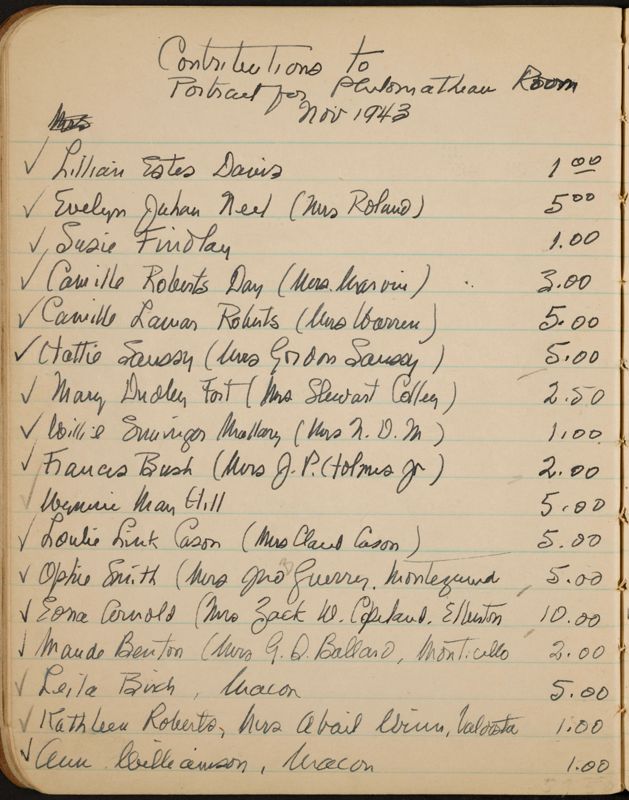 Contributions to
Portrait for Philomathean Room
Nov 1943
Mrs
✓ Lillian Estes Davis 1 00
✓ Evelyn Juhan Neel (Mrs Roland) 5 00
✓ Susie Findlay 1.00
✓ Camille Roberts Day (Mrs. Marvin) 3.00
✓ Camille Lamar Roberts (Mrs Warren) 5.00
✓ Hattie Saussy (Mrs Gordon Saussy) 5.00
✓ Mary Dudley Fort (Mrs Stewart Colley) 2.50
✓ Willie Mallary (Mrs N. D. M) 1.00
✓ Frances Bush (Mrs J. P. Holmes Jr) 2.00
✓ Wynnie May Hill 5.00
✓ Loulie Link Cason (Mrs Claud Cason) 5.00
✓ Ophie Smith (Mrs Jno Guerry, Montezuma 5.00
✓ Edna Arnold (Mrs Zack W. Copeland, Elberton 10.00
✓ Maude Benton (Mrs G. D. Ballard, Monticello 2.00
✓ Leila Birch, Macon 5.00
✓ Kathleen Roberts, Mrs Abail Winn, Valdosta 1.00
✓ Ann Williamson, Macon 1.00